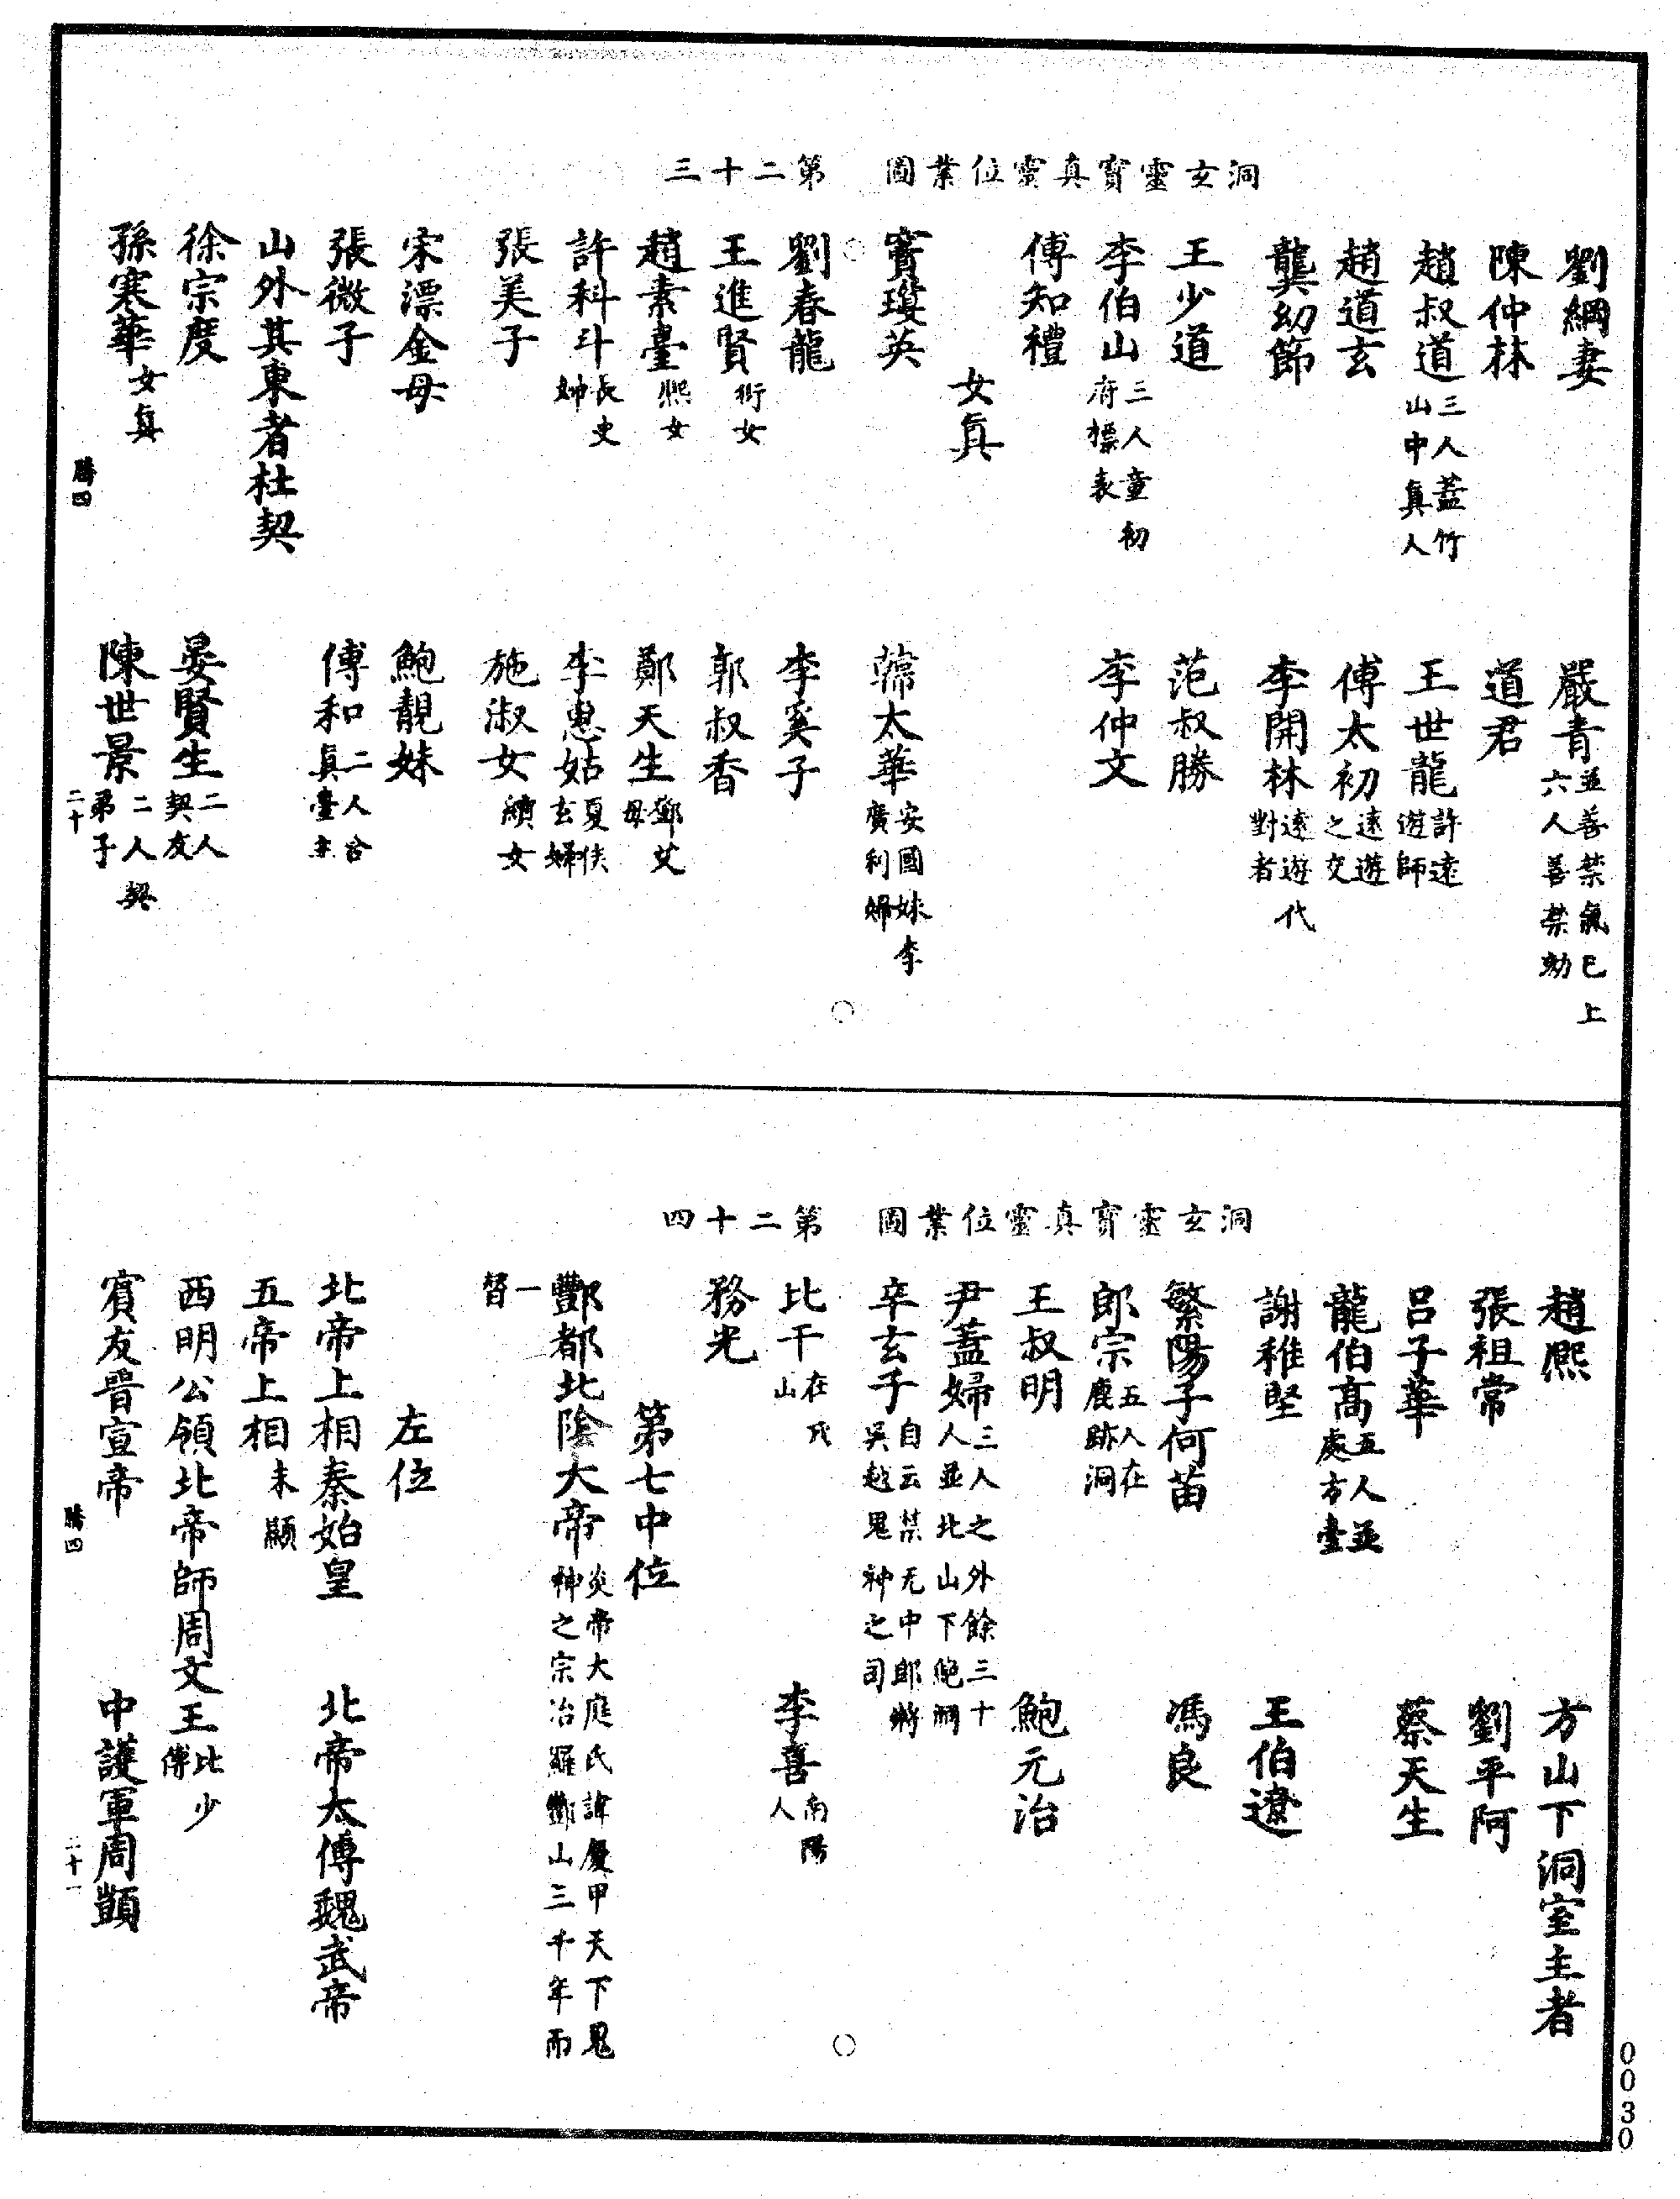 洞玄靈寶真靈位業圖　第二十三
劉綱妻　嚴青並善禁氣巳上六人善禁劾
陳仲林　道君
趙叔道三人蓋竹山中真人　王世龍許遠遊師
趙道玄　傅太初遠遊之交
龔幼節　李開林遠遊代對者
王少道　范叔勝
李伯山三人童初府標表　李仲文
傅知禮
女真
竇瓊英　韓太華安國妹李廣利婦
劉春龍　李奚子
王進賢衍女　郭叔香
趙素臺熙女　鄭天生鄧艾母
許科斗長史婦　李惠姑夏侯玄婦
張美子　施淑女濆女
宋漂金母　鮑靚妹
張微子　傅和二人含真臺主
山外其東者杜契
徐宗度　晏賢生二人契友
孫寒華女真　陳世景二人契弟子
勝四　二十
洞玄靈寶真靈位業圖　第二十四
趙熙　方山下洞室主者
張祖常　劉平阿
呂子華　蔡天生
龍伯高五人並處方臺
謝稚堅　王伯遼
繁陽子何苗　馮良
郎宗五人在鹿跡洞
王叔明　鮑元治
尹蓋婦三人之外餘三十人並北山下絶洞
辛玄子自云禁元中郎將吳越鬼神之司
比干在戎山　李喜南陽人
務光
第七中位
酆都北陰大帝炎帝大庭氏諱慶甲天下鬼神之宗治羅酆山三千年而
一替
左位
北帝上相秦始皇　北帝太傅魏武帝
五帝上相未顯
西明公領北帝師周文王比少傅
賓友晉宣帝　中護軍周顗
勝四　二十一
0030